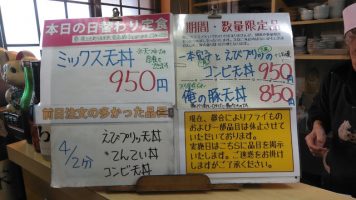 本日の日替わり定食
ミックス天丼
950円
前日注文の多かった品
4/2分
えびプリッ天丼
てんてい丼
コンビ天丼
期間・数量限定品
一本穴子とえびプリッの
コンビ天丼 950円
俺の豚天丼 850円
現在、都合によりフライもの
および一部品目は休止させて
いただいております。
実施日はこちらに品目を掲示
いたします。ご迷惑をお掛け
しますがご了承ください。